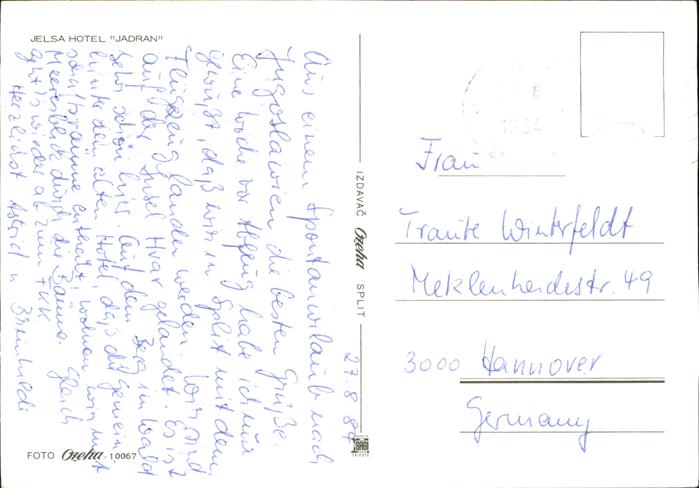 JELSA HOTEL "JADRAN"
Aus einem Spontanurlaub nach
Jugoslawien die besten Grüße.
Eine Woche vor Abflug habe ich nur
gewußt, daß wir in Split mit dem
Flugzeug landen werden. Wir sind
auf der Insel Hvar gelandet. Es ist
sehr schön hier. Auf dem Berg im Wald
hinter dem alten Hotel, daß die Gemein-
schaftsräume enthält, wohnen wir mit
Meeresblick durch die Bäume. Gleich
geht's wieder ab zum FKK
Herzlichst Astrid u.
FOTO Ozeha 10067
IZDAVAČ Ozeha SPLIT
27.8.84
Frau
Traute Winterfeldt
Meklenheidestr. 49
3000 Hannover
Germany